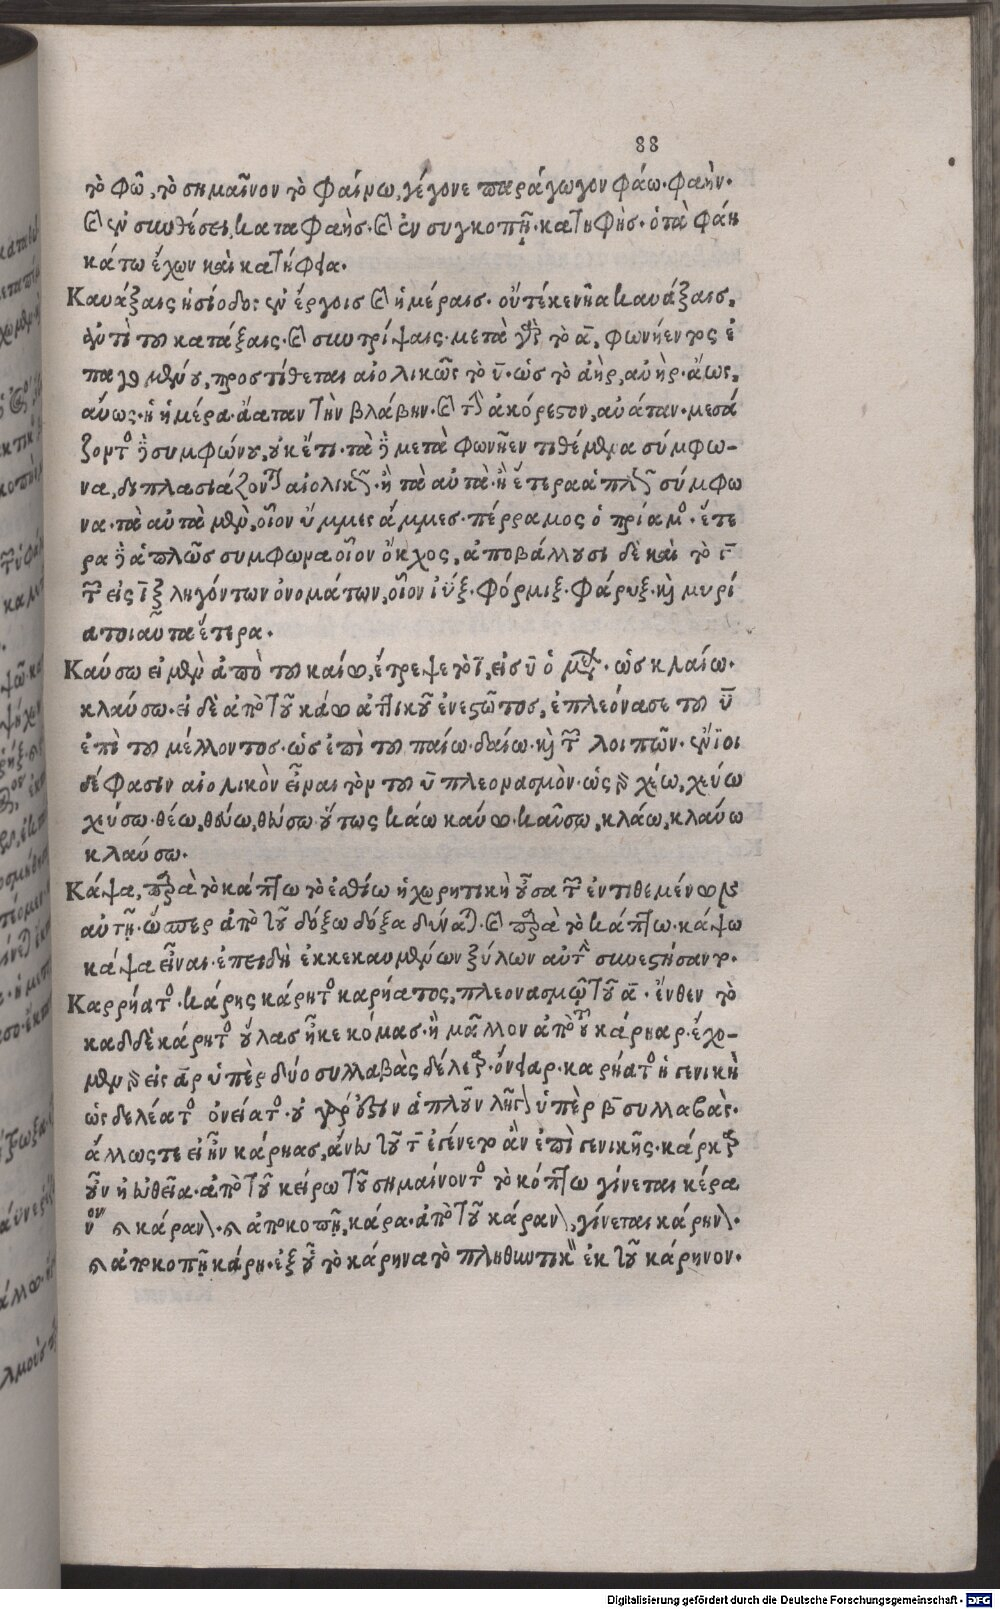 88
τὸ φῶ, τὸ σημαῖνον τὸ φαίνω, γέγονε παράγωγον φάω. φαὴν.
καὶ ἐν συνθέσει, καταφαὴς. καὶ ἐν συγκοπῇ. κατηφὴς. ὁ τὰ φάη
κάτω ἔχων καὶ κατήφεα.
Καυάξαις ἡσίοδος ἐν ἔργοις καὶ ἡμέραις. οὔτέ κεν νῆα καυάξαις.
ἀντὶ τοῦ κατάξαις. καὶ συντρίψαις. μετὰ γὰρ τὸ α, φωνήεντος ἐ
παγομένου, προστίθεται αἰολικῶς τὸ υ. ὡς τὸ ἀὴρ, αὐὴρ. ἄως,
αὔως. ἡ ἡμέρα. ἄαταν τὴν βλάβην. καὶ τὸ ἀκόρεστον, αὐάταν. μεσά
ζοντος δὲ συμφώνου, οὐκ ἔτι. τὰ δὲ μετὰ φωνῆεν τιθέμενα σύμφω-
να, διπλασιάζονται αἰολικῶς. ἢ τὰ αὐτὰ. ἢ ἕτερα ἁπλῶς σύμφω
να. τὰ αὐτὰ μὲν, οἷον ὔμμες ἄμμες. πέρραμος ὁ πρίαμος. ἕτε
ρα δὲ ἁπλῶς σύμφωνα οἷον ὄκχος, ἀποβάλλουσι δὲ καὶ τὸ γ
τῶν εἰς γξ ληγόντων ὀνομάτων, οἷον ἰύξ. φόρμιξ. φάρυξ. καὶ μυρί
α τοιαῦτα ἕτερα.
Καύσω εἰ μὲν ἀπὸ τοῦ καίω, ἔτρεψε τὸ ι, εἰς υ ὁ μέλλων. ὡς κλαίω.
κλαύσω. εἰ δὲ ἀπὸ τοῦ κάω ἀττικοῦ ἐνεστῶτος, ἐπλεόνασε τὸ υ
ἐπὶ τοῦ μέλλοντος. ὡς ἐπὶ τοῦ παίω. δαίω. καὶ τῶν λοιπῶν. ἔνιοι
δέ φασιν αἰολικὸν εἶναι τὸν τοῦ υ πλεονασμὸν. ὡς χέω, χεύω
χεύσω. θέω, θεύω, θεύσω οὕτως κάω καύω. καύσω, κλάω, κλαύω
κλαύσω.
Κάψα, παρὰ τὸ κάπτω τὸ ἐσθίω ἡ χωρητικὴ οὖσα τῶν ἐντιθεμένων
αὐτῇ. ὥσπερ ἀπὸ τοῦ δόξω δόξα δύναται. καὶ παρὰ τὸ κάπτω. κάψω
κάψα εἶναι. ἐπειδὴ ἐκ κεκαυμένων ξύλων αὐτὴν συνεστήσαντο.
Καρρήατος. κάρης κάρητος καρήατος, πλεονασμῷ τοῦ α. ἔνθεν τὸ
καδδὲ κάρητος οὔλας ἧκε κόμας. ἢ μᾶλλον ἀπὸ τοῦ κάρηαρ. ἐχο-
μένου εἰς αρ ὑπὲρ δύο συλλαβὰς δέλεαρ. ὄνειαρ. καρήατος ἡ γενικὴ
ὡς δελέατος ὀνείατος. οὐ γὰρ ἁπλοῦν λῆγει ὑπὲρ β συλλαβὰς.
ἄλλως τε εἰ ἦν κάρηας, ἄνευ τοῦ τ ἐγένετο ἂν ἐπὶ γενικῆς. κάρηαρ
οὖν ἡ εὐθεῖα. ἀπὸ τοῦ κείρω τοῦ σημαίνοντος τὸ κόπτω γίνεται κέρα
νον καὶ κάρανον. καὶ ἀποκοπῇ, κάρα. ἀπὸ τοῦ κάρανον, γίνεται κάρηνον.
καὶ ἀποκοπῇ κάρη. ἐξ οὗ τὸ κάρηνα τὸ πληθυντικὸν ἐκ τοῦ κάρηνον.
Digitalisierung gefördert durch die Deutsche Forschungsgemeinschaft - DFG